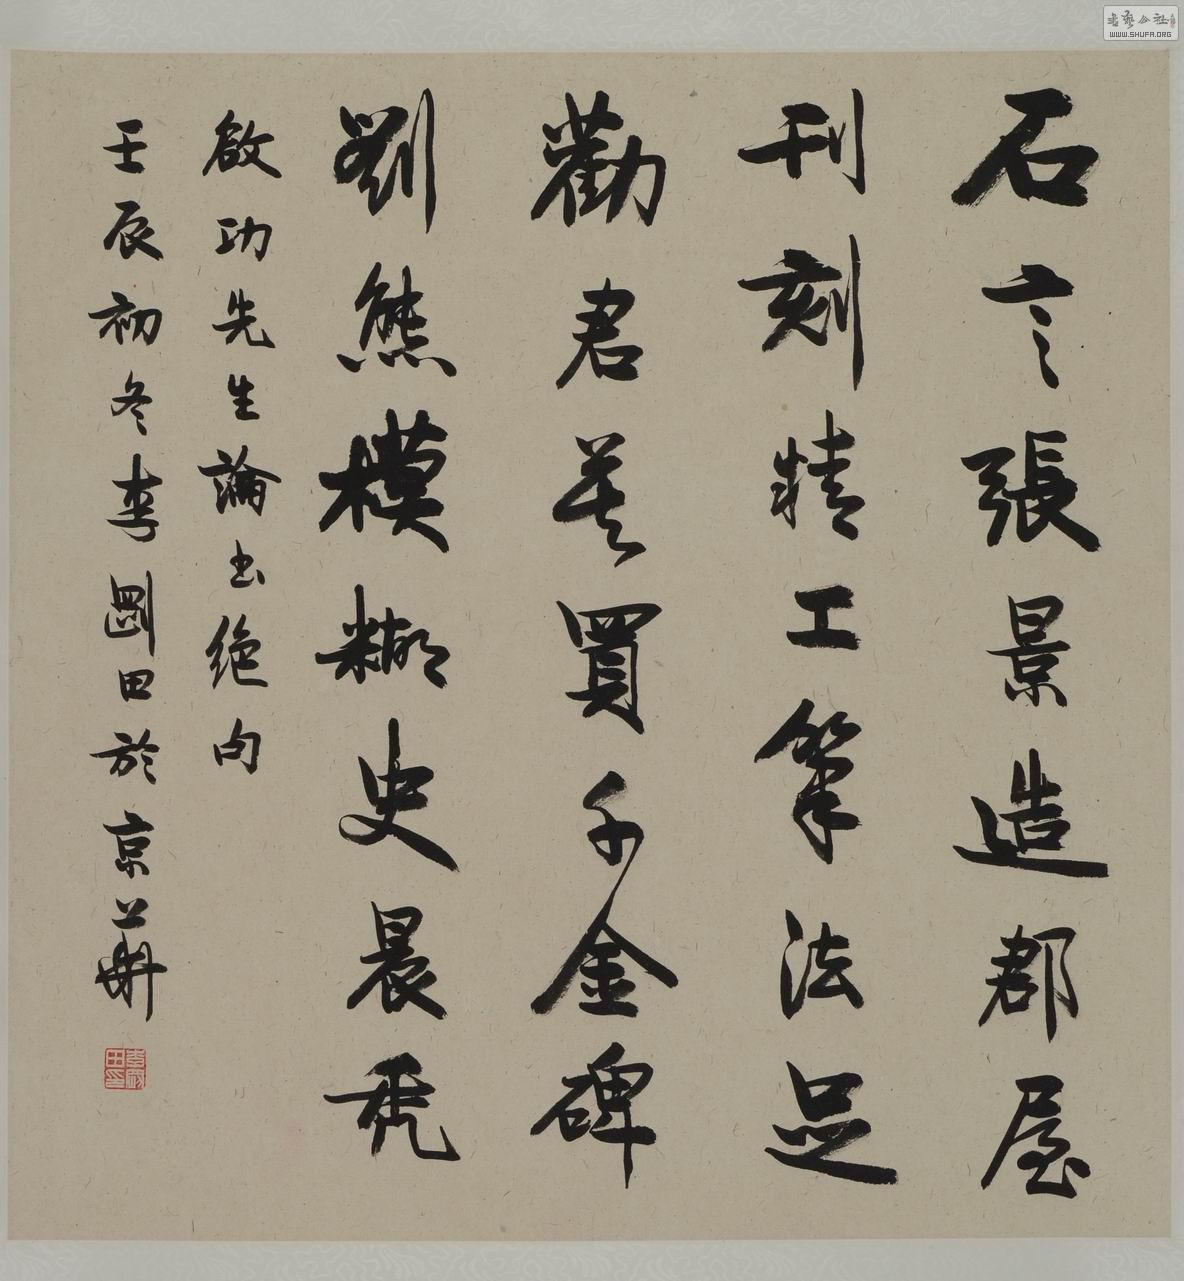 石言張景造郡屋
刊刻精工筆法足
勸君莫買千金碑
劉熊模糊史晨禿
啟功先生論書絕句
壬辰初冬李剛田於京華
李剛田印
書藝公社
WWW.SHUFA.ORG